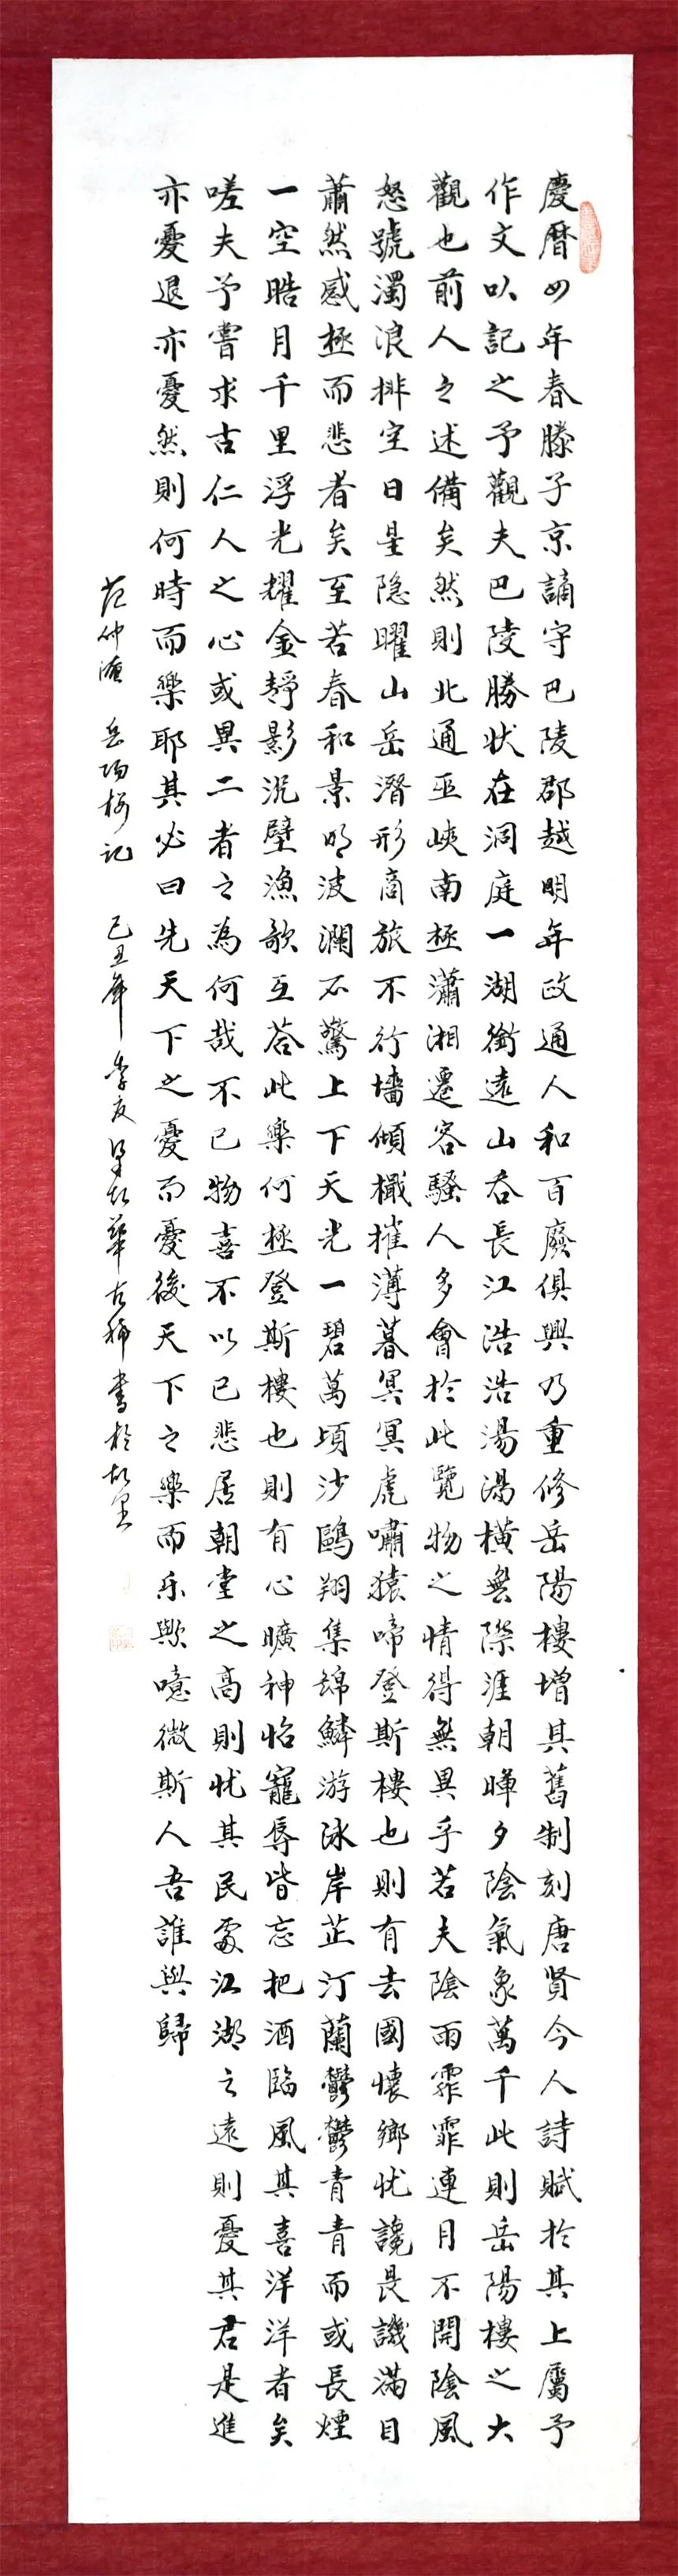 慶曆四年春滕子京謫守巴陵郡越明年政通人和百廢俱興乃重修岳陽樓增其舊制刻唐賢今人詩賦於其上屬予
作文以記之予觀夫巴陵勝狀在洞庭一湖銜遠山吞長江浩浩湯湯橫無際涯朝暉夕陰氣象萬千此則岳陽樓之大
觀也前人之述備矣然則北通巫峽南極瀟湘遷客騷人多會於此覽物之情得無異乎若夫陰雨霏霏連月不開陰風
怒號濁浪排空日星隱曜山岳潛形商旅不行墻傾檝摧薄暮冥冥虎嘯猿啼登斯樓也則有去國懷鄉忧讒畏譏滿目
蕭然感極而悲者矣至若春和景明波瀾不驚上下天光一碧萬頃沙鷗翔集錦鱗游泳岸芷汀蘭鬱鬱青青而或長煙
一空皓月千里浮光耀金靜影沉璧漁歌互荅此樂何極登斯樓也則有心曠神怡寵辱皆忘把酒臨風其喜洋洋者矣
嗟夫予嘗求古仁人之心或異二者之為何哉不已物喜不以已悲居朝堂之高則忧其民處江湖之遠則憂其君是進
亦憂退亦憂然則何時而樂耶其必曰先天下之憂而憂後天下之樂而乐歟噫微斯人吾誰與歸
范仲淹 岳陽樓记 己丑年 季夏 華古稀書於故里